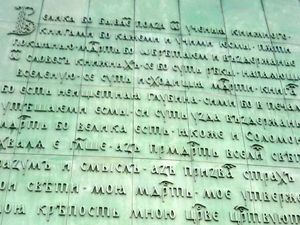 Велика бо бываѥть полза ѿ учениꙗ книжного
книгами бо кажеми и учими ѥсмы пути
покаꙗнью мдрть бо ѡбрѣтаем и въздержаньѥ
ѿ словесъ книжныхъ се бо суть рѣкы напаꙗюще
вселеную се суть исходища мдрти книгамъ
бо есть неищетная глубина сими бо в печали
утѣшаеми есмы си суть узда въздержанью
мдрть бо велика есть ꙗкоже и Соломонъ
хвалѧ е глше азъ прмдрть вселихъ свѣтъ
разумъ и смыслъ азъ призвах страхъ
мои свѣти моꙗ мдрть мое утвержение
моꙗ крѣпость мною црве црствуют